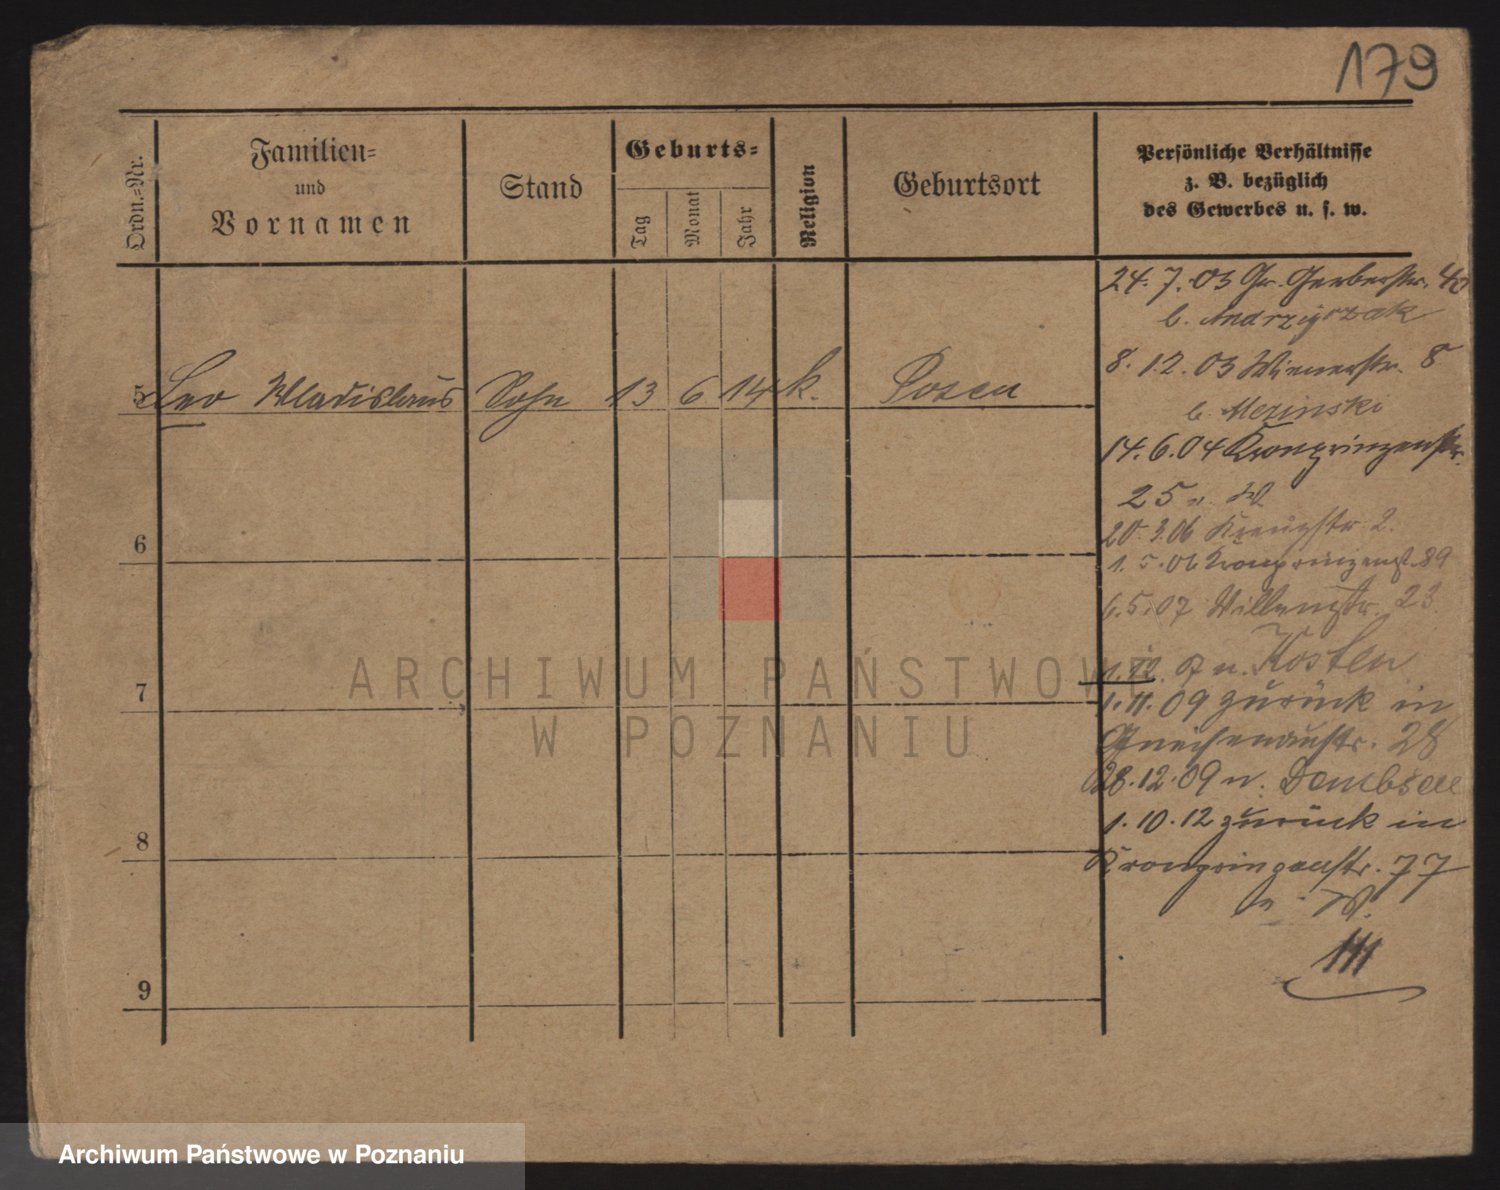 179
Ordn.=Nr.
Familien=
und
Vornamen
Stand
Geburts=
Tag
Monat
Jahr
Religion
Geburtsort
Persönliche Verhältnisse
z. B. bezüglich
des Gewerbes u. s. w.
24.7.03 Gr. Gerberstr. 40
b. Andrzyczak
8.12.03 Wienerstr. 8
b. Mezinski
5 Leo Wladislaus Sohn 13 6 14 k. Posen
14.6.04 Kronprinzenstr.
25 n. W
20.3.06 Kreuzstr 2.
6
1.5.06 Kronprinzenst. 89
6.5.07 Billeustr. 23
1.12.07 n. Kosten
7
1.11.09 zurück in
Gneisenaustr. 28
28.12.09 n. Dombsen
1.10.12 zurück in
8
Kronprinzenstr. 77
n. W.
111
9
ARCHIWUM PAŃSTWOWE
W POZNANIU
Archiwum Państwowe w Poznaniu